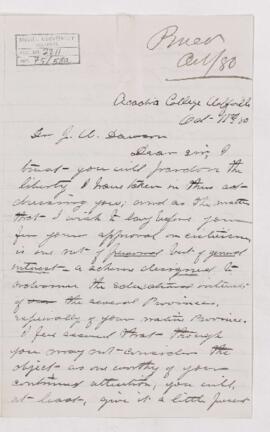 Oct/80
Acadia College Wolfville
Dr J. W. Dawson
Dear Sir,
I
trust you will pardon the
liberty I have taken in thus ad-
dressing you; and as the matter
that I wish to lay before you
for your approval or criticism
is one not of personal but of general
interest - a scheme designed to
the educational
of the several Provinces,
especially of your native Province.
I feel assured that though
you may not consider the
object as one worthy of your
continued attention, you will,
at least, give it a little